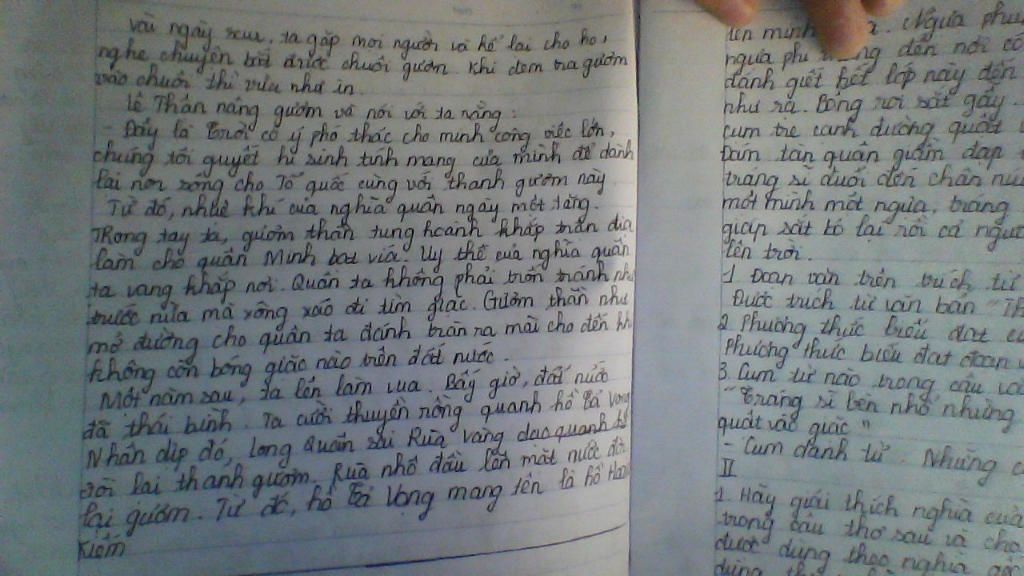 Vài ngày sau, ta gặp mọi người và kể lại cho họ,
nghe chuyện bắt được chuôi gươm. Khi đem tra gươm
vào chuôi thì vừa như in.
Lê Thận nâng gươm và nói với ta rằng:
- Đây là trời có ý phó thác cho minh công việc lớn,
chúng tôi quyết hi sinh tính mạng của mình để dành
lại non sông cho Tổ quốc cùng với thanh gươm này
Từ đó, nhuệ khí của nghĩa quân ngày một tăng.
Trong tay ta, gươm thần tung hoành khắp trận địa
làm cho quân Minh bạt vía. Uy thế của nghĩa quân
ta vang khắp nơi. Quân ta không phải trốn tránh như
trước nữa mà xông xáo đi tìm giặc. Gươm thần như
mở đường cho quân ta đánh tràn ra mãi cho đến khi
không còn bóng giặc nào trên đất nước.
Một năm sau, ta lên làm vua. Bấy giờ, đất nước
đã thái bình. Ta cưỡi thuyền rồng quanh hồ Tả Vọng
Nhân dịp đó, Long Quân sai Rùa Vàng dạo quanh hồ
đòi lại thanh gươm. Rùa nhô đầu lên mặt nước đòi
lại gươm. Từ đó, hồ Tả Vọng mang tên là hồ Hoàn
Kiếm
lên mình Ngựa phun
ngựa phi đến nơi có
đánh giết hết lớp này đến
như rạ. Bỗng roi sắt gãy.
cụm tre cạnh đường quật
Đám tàn quân giẫm đạp
tráng sĩ đuổi đến chân núi
một mình một ngựa, tráng
giáp sắt bỏ lại rồi cả người
lên trời.
1 Đoạn văn trên trích từ
Được trích từ văn bản "Th
2. Phương thức biểu đạt
Phương thức biểu đạt đoạn
3. Cụm từ nào trong câu
"Tráng sĩ bèn nhổ những
quật vào giặc"
- Cụm danh từ: Những
II
1. Hãy giải thích nghĩa của
trong câu thơ sau và cho
được dùng theo nghĩa gốc
dùng